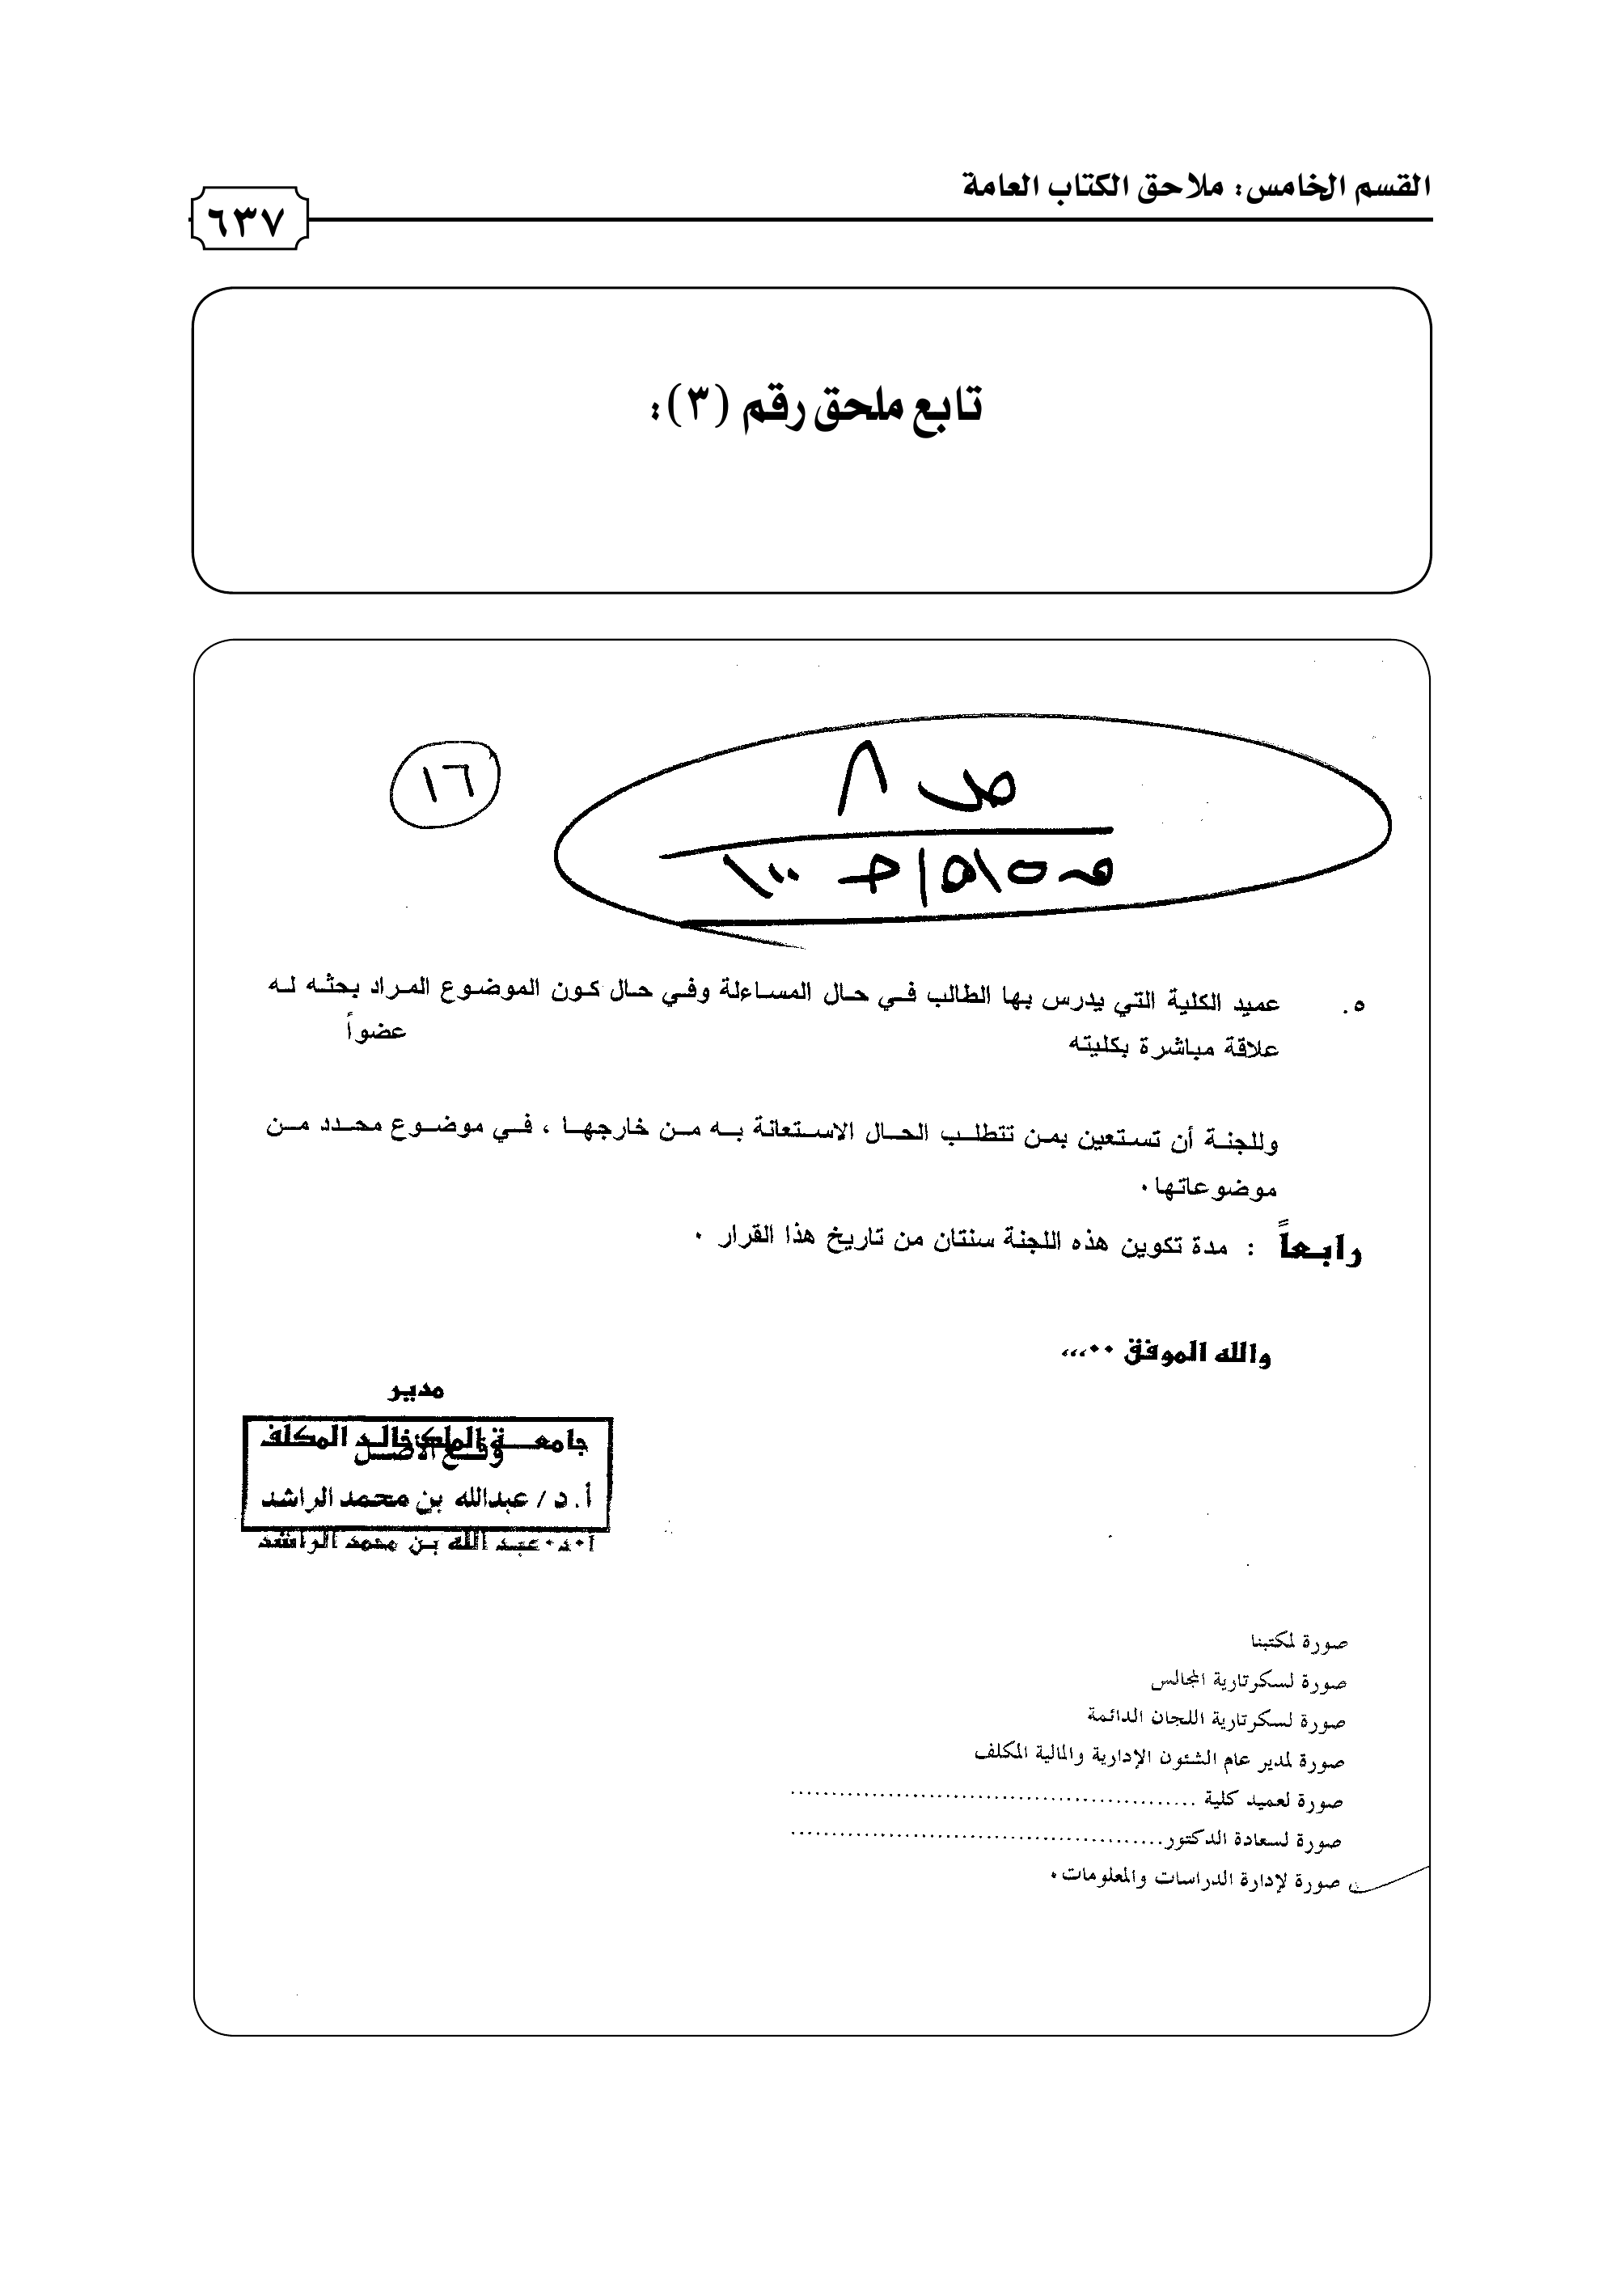 القسم الخامس: ملاحق الكتاب العامة
٦٣٧
تابع ملحق رقم (٣):
ص ٨
١٦
٥. عميد الكلية التي يدرس بها الطالب في حال المساءلة وفي حال كون الموضوع المراد بحثه له
علاقة مباشرة بكليته عضواً
وللجنة أن تستعين بمن تتطلب الحال الاستعانة به من خارجها ، في موضوع محدد من
موضوعاتها.
رابعاً : مدة تكوين هذه اللجنة سنتان من تاريخ هذا القرار .
والله الموفق ..،،،
مدير
جامعة الملك خالد المكلف
وقع الأصل
أ. د / عبدالله بن محمد الراشد
أ.د. عبد الله بن محمد الراشد
صورة لمكتبنا
صورة لسكرتارية المجالس
صورة لسكرتارية اللجان الدائمة
صورة لمدير عام الشئون الإدارية والمالية المكلف
صورة لعميد كلية ..................................................
صورة لسعادة الدكتور..............................................
صورة لإدارة الدراسات والمعلومات.